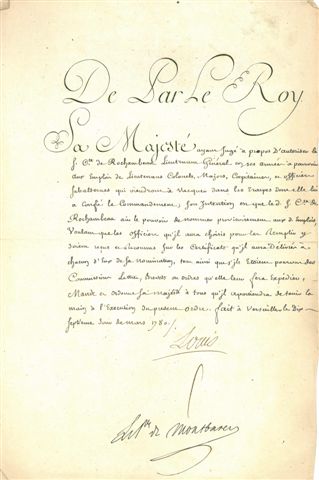 De Par Le Roy
Sa Majesté ayant jugé a propos D'autoriser le
S. Cte. de Rochambeau Lieutenant Général en ses armées a pourvoir
aux Emplois de Lieutenans Colonels, Majors, Capitaines, et officiers
subalternes qui viendront à vacquer dans les Troupes dont elle lui
a Confié le Commandement, son Intention est que le d. S. Cte. de
Rochambeau ait le pouvoir de nommer provisoirement aux d. Emplois,
Voulant que les Officiers qu'il aura choisis pour les Remplir y
soient reçus et reconnus sur les Certificats qu'il aura Délivrés à
chacun d'Eux de sa nomination, tout ainsi que s'ils Etoient pourvus des
Commissions Lettres, brevets ou ordres qu'elle leur fera Expédier,
Mande et ordonne Sa majesté à tous qu'il appartiendra de tenir la
main à l'Execution du present Ordre. fait à Versailles le Dix
Septieme Jour de mars 1780.
Louis
Le Pce. de Montbarey